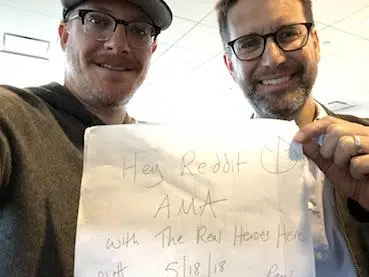 Hey Reddit
AMA
with The Real Heroes Here
5/18/18